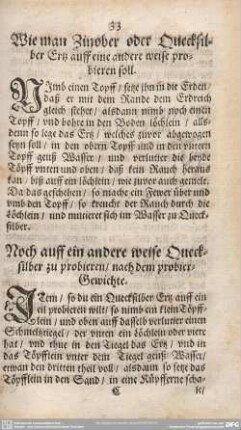 33
Wie man Zinober oder Quecksil-
ber Ertz auff eine andere weise pro-
bieren soll.
NImb einen Topff / setze ihn in die Erden /
daß er mit dem Rande dem Erdreich
gleich stehet / alsdann nimb noch einen
Topff / vnd bohre in den Boden löchlein / als-
denn so lege das Ertz / welches zuvor abgewogen
seyn soll / in den obern Topff vnd in den vntern
Topff geuß Wasser / und verlutier die beyde
Töpff vnten vnd oben / daß kein Rauch heraus
kan / biß auff ein löchlein / wie zuvor auch gemelt.
Da das geschehen / so mache ein Fewer über vnd
vmb den Topff / so kreucht der Rauch durch die
Löchlein / vnd mutieret sich im Wasser zu Queck-
silber.
Noch auff ein andere weise Queck-
silber zu probieren / nach dem probier-
Gewichte.
ITem / so du ein Quecksilber Ertz auff ein
eil probieren wilt / so nimb ein klein Töpff-
lein / und oben auff dasselb verlutier einen
Schmeltztiegel / der vnten ein löchlein oder viere
hat / vnd thue in den Tiegel das Ertz / vnd in
das Töpfflein vnter dem Tiegel geuß Wasser /
etwan den dritten theil voll / alsdann so setze das
Töpfflein in den Sand / in eine Küpfferne scha-
C
le /